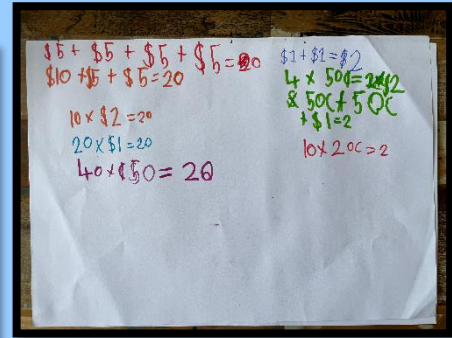 $5 + $5 + $5 + $5 = 20
$10 + $5 + $5 = 20
10 x $2 = 20
20 x $1 = 20
40 x $50 = 20
$1 + $1 = $2
4 x 50c = $2
& 50c + 50c
+ $1 = 2
10 x 20c = 2